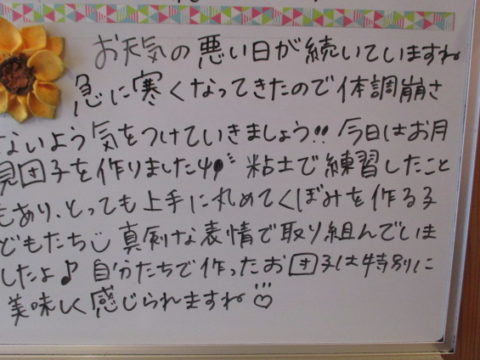 お天気の悪い日が続いていますね
急に寒くなってきたので体調崩さ
ないよう気をつけていきましょう!! 今日はお月
見団子を作りました 粘土で練習したこと
もあり、とっても上手に丸めてくぼみを作る子
どもたち 真剣な表情で取り組んでいま
したよ♪ 自分たちで作ったお団子は特別に
美味しく感じられますね♡